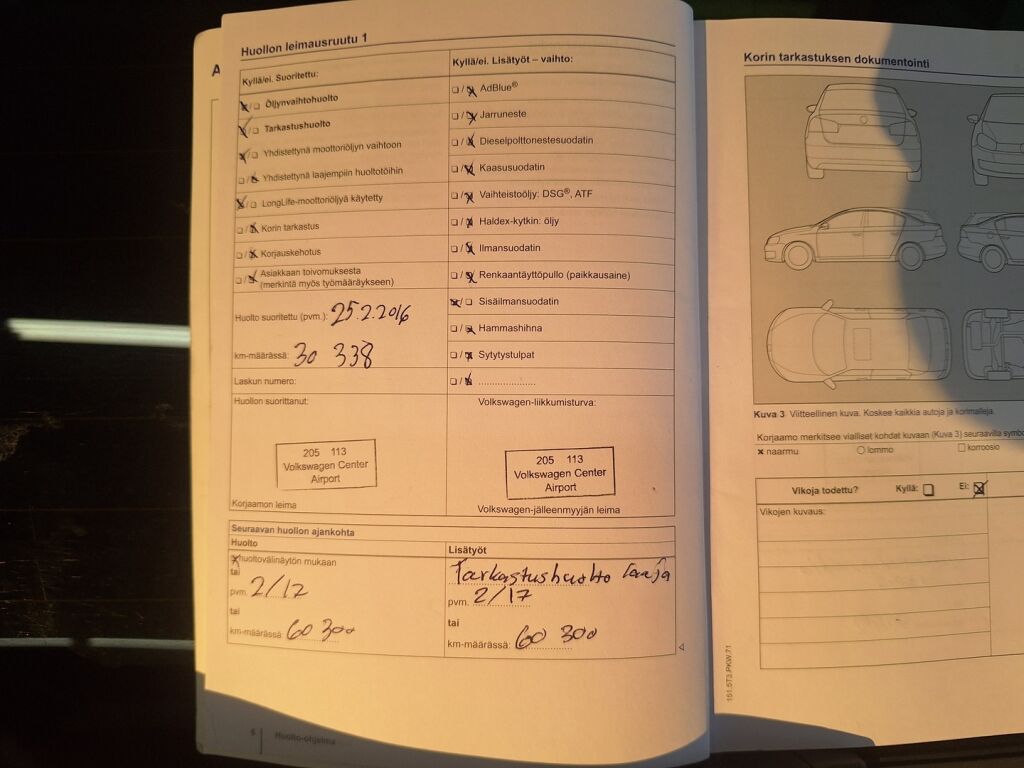 Huollon leimausruutu 1
Kyllä/ei. Suoritettu:
Öljynvaihtohuolto
Tarkastushuolto
Yhdistettynä moottoriöljyn vaihtoon
Yhdistettynä laajempiin huoltotöihin
LongLife-moottoriöljyä käytetty
Korin tarkastus
Korjauskehotus
Asiakkaan toivomuksesta
(merkintä myös työmääräykseen)
Huolto suoritettu (pvm.): 25.2.2016
km-määrässä: 30 338
Laskun numero:
Huollon suorittanut:
205 113
Volkswagen Center
Airport
Korjaamon leima
Kyllä/ei. Lisätyöt – vaihto:
AdBlue®
Jarruneste
Dieselpolttonestesuodatin
Kaasusuodatin
Vaihteistoöljy: DSG®, ATF
Haldex-kytkin: öljy
Ilmansuodatin
Renkaantäyttöpullo (paikkausaine)
Sisäilmansuodatin
Hammashihna
Sytytystulpat
Volkswagen-liikkumisturva:
205 113
Volkswagen Center
Airport
Volkswagen-jälleenmyyjän leima
Seuraavan huollon ajankohta
Huolto
huoltovälinäytön mukaan
tai
pvm. 2/17
tai
km-määrässä: 60 300
Lisätyöt
Tarkastushuolto laaja
pvm. 2/17
tai
km-määrässä: 60 300
6 Huolto-ohjelma
Korin tarkastuksen dokumentointi
Kuva 3 Viitteellinen kuva. Koskee kaikkia autoja ja korimalleja.
Korjaamo merkitsee vialliset kohdat kuvaan (Kuva 3) seuraavilla
naarmu lommo korroosio
Vikoja todettu? Kyllä: Ei:
Vikojen kuvaus:
151.5T3.PKW.71